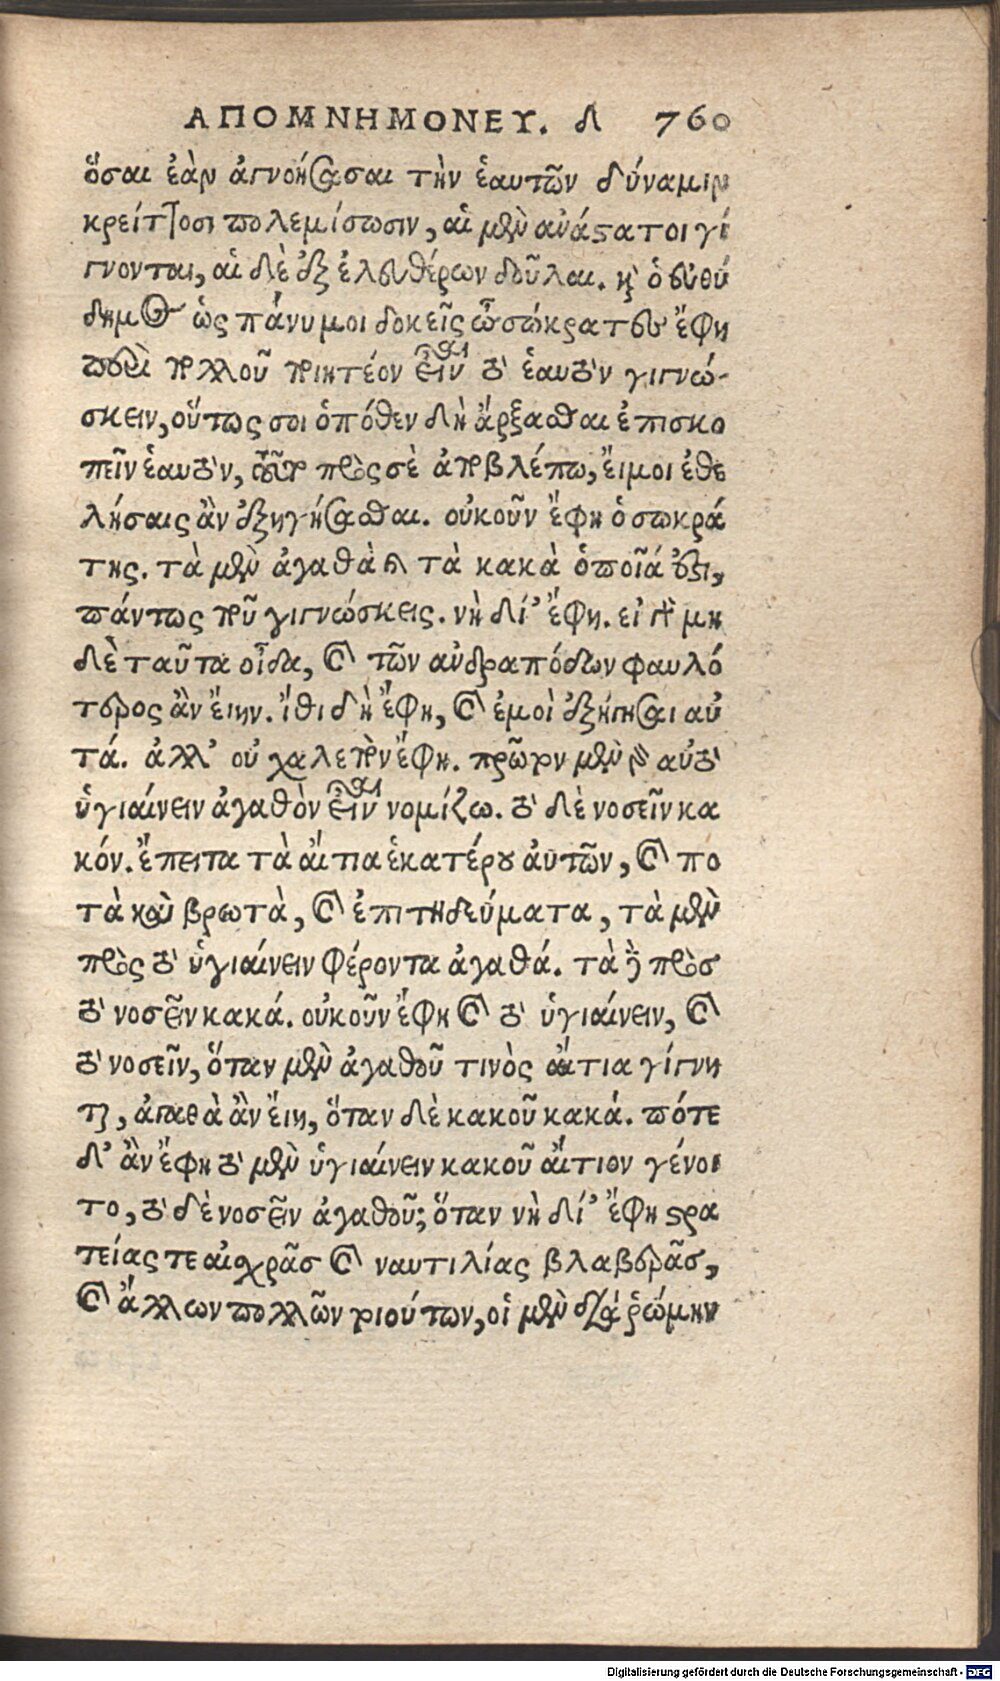 ΑΠΟΜΝΗΜΟΝΕΥ. Δ 760
ὅσαι ἐὰν ἀγνοήσασαι τὴν ἑαυτῶν δύναμιν
κρείττοσι πολεμίσωσιν, αἱ μὲν ἀνάστατοι γί
γνονται, αἱ δὲ ἐξ ἐλευθέρων δοῦλαι. κ̀ ὁ εὐθύ
δημος ὡς πάνυ μοι δοκεῖς ὦ σώκρατες ἔφη
περὶ πολλοῦ ποιητέον εἶναι τὸ ἑαυτὸν γιγνώ-
σκειν, οὕτως σοι ὁπόθεν δὴ ἄρξασθαι ἐπισκο
πεῖν ἑαυτὸν, τοῦτο πρὸς σὲ ἀποβλέπω, εἴ μοι ἐθε
λήσαις ἂν ἐξηγήσασθαι. οὐκοῦν ἔφη ὁ σωκρά
της. τὰ μὲν ἀγαθὰ κ̀ τὰ κακὰ ὁποῖά ἐστι,
πάντως που γιγνώσκεις. νὴ Δί’ ἔφη. εἰ γὰρ μη
δὲ ταῦτα οἶδα, καὶ τῶν ἀνδραπόδων φαυλό
τερος ἂν εἴην. ἴθι δὴ ἔφη, καὶ ἐμοὶ ἐξήγησαι αὐ
τά. ἀλλ’ οὐ χαλεπὸν ἔφη. πρῶτον μὲν γὰρ αὐτὸ
ὑγιαίνειν ἀγαθὸν εἶναι νομίζω. τὸ δὲ νοσεῖν κα
κόν. ἔπειτα τὰ αἴτια ἑκατέρου αὐτῶν, καὶ πο
τὰ καὶ βρωτὰ, καὶ ἐπιτηδεύματα, τὰ μὲν
πρὸς τὸ ὑγιαίνειν φέροντα ἀγαθά. τὰ δὲ πρὸς
τὸ νοσεῖν κακά. οὐκοῦν ἔφη καὶ τὸ ὑγιαίνειν, καὶ
τὸ νοσεῖν, ὅταν μὲν ἀγαθοῦ τινὸς αἴτια γίγνη
ται, ἀγαθὰ ἂν εἴη, ὅταν δὲ κακοῦ κακά. πότε
δ’ ἂν ἔφη τὸ μὲν ὑγιαίνειν κακοῦ αἴτιον γένοι
το, τὸ δὲ νοσεῖν ἀγαθοῦ; ὅταν νὴ Δί’ ἔφη στρα
τείας τε αἰσχρᾶς καὶ ναυτιλίας βλαβερᾶς,
καὶ ἄλλων πολλῶν τοιούτων, οἱ μὲν διὰ ῥώμην
Digitalisierung gefördert durch die Deutsche Forschungsgemeinschaft - DFG